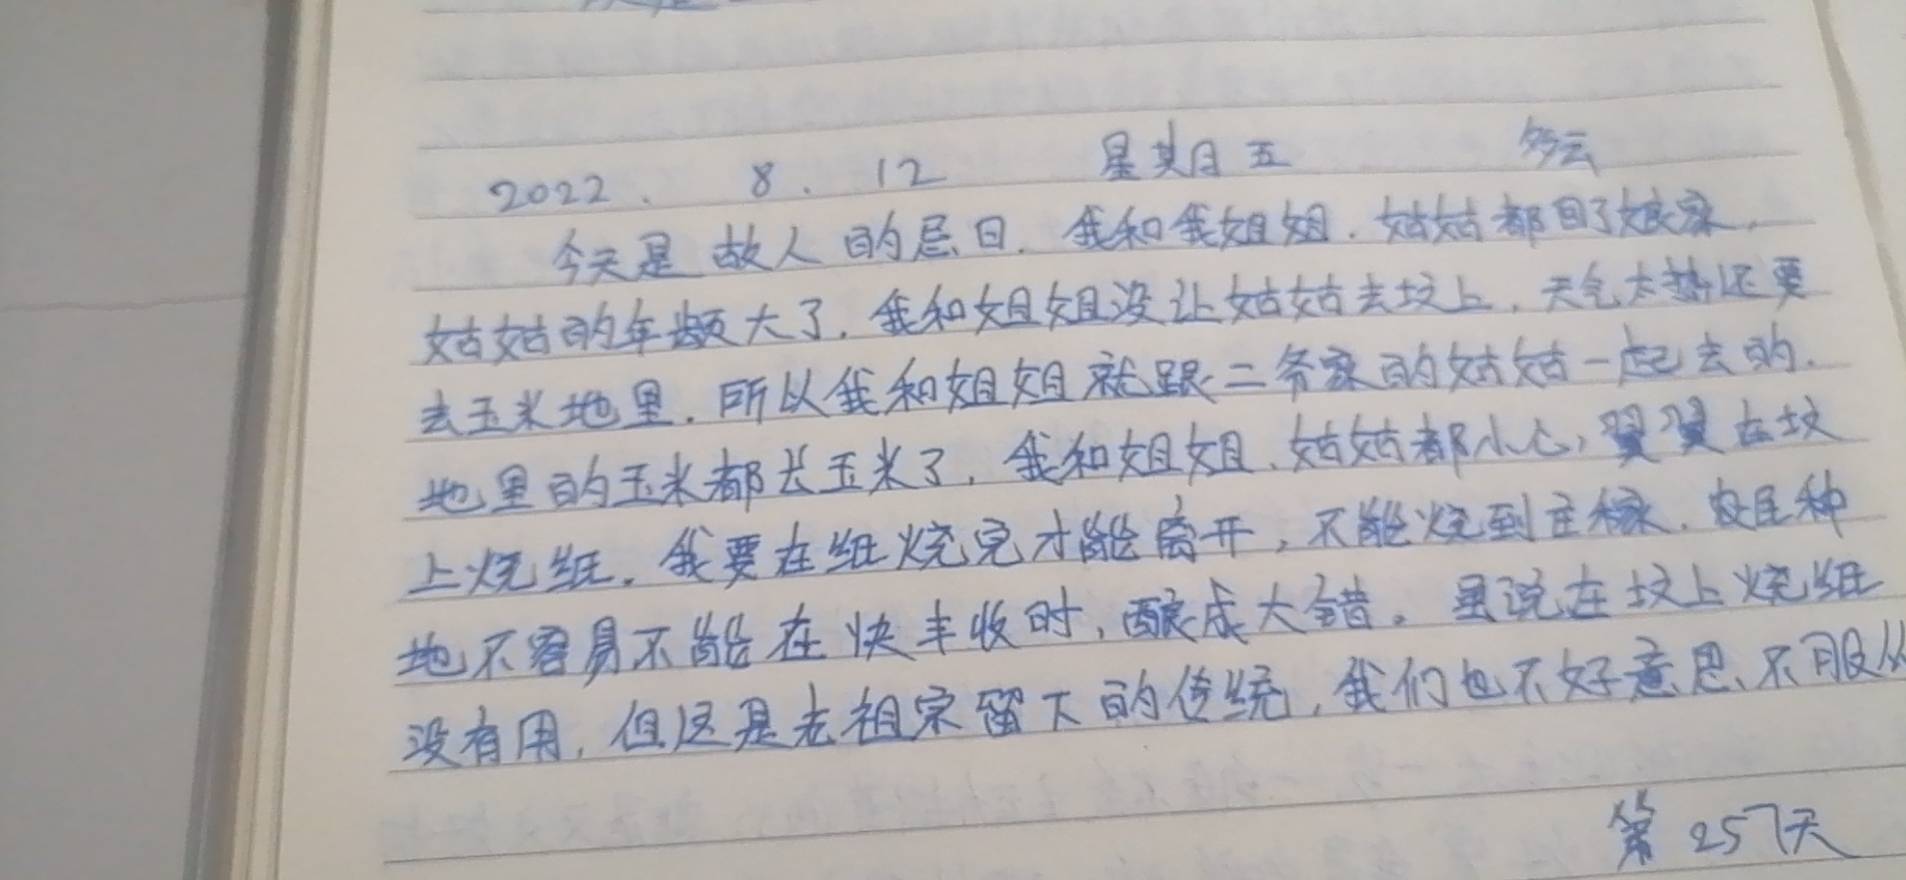 2022. 8. 12 星期五 多云
今天是故人的忌日.我和我姐姐.姑姑都回了娘家.
姑姑的年龄大了.我和姐姐没让姑姑去坟上.天气太热还要
去玉米地里.所以我和姐姐就跟二爷家的姑姑一起去的.
地里的玉米都长玉米了.我和姐姐.姑姑都小心,翼翼在坟
上烧纸.我要在纸烧完才能离开,不能烧到庄稼.农民种
地不容易不能在快丰收时,酿成大错。虽说在坟上烧纸
没有用,但这是老祖宗留下的传统,我们也不好意思、不服从
第257天